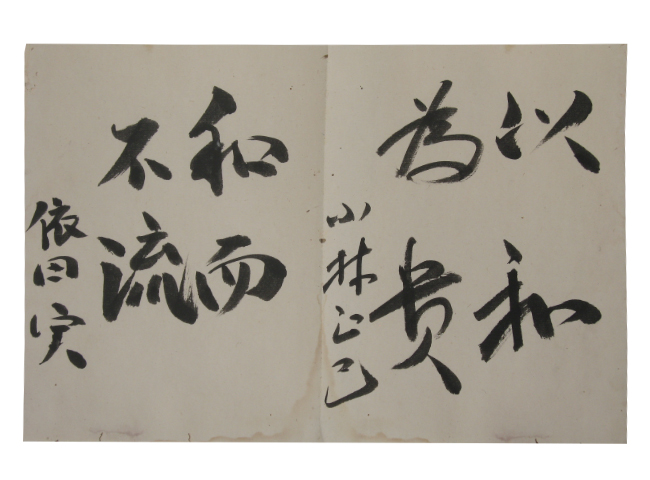 以和
為貴
小林正己
和而
不流
依田実